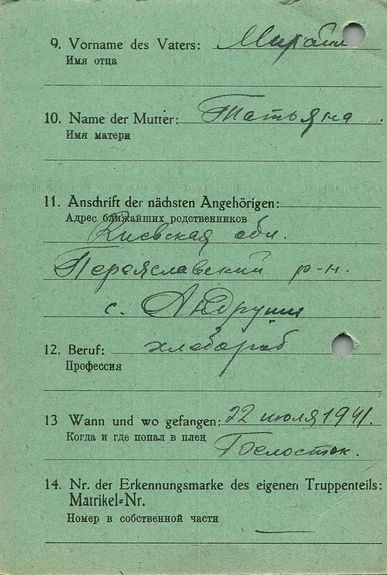 9. Vorname des Vaters:
Имя отца
10. Name der Mutter: Татьяна
Имя матери
11. Anschrift der nächsten Angehörigen:
Адрес ближайших родственников
Киевская обл.
Переяславский р-н.
с. Андруши
12. Beruf: хлебороб
Профессия
13 Wann und wo gefangen: 22 июля 1941.
Когда и где попал в плен
Белосток.
14. Nr. der Erkennungsmarke des eigenen Truppenteils:
Matrikel-Nr.
Номер в собственной части —